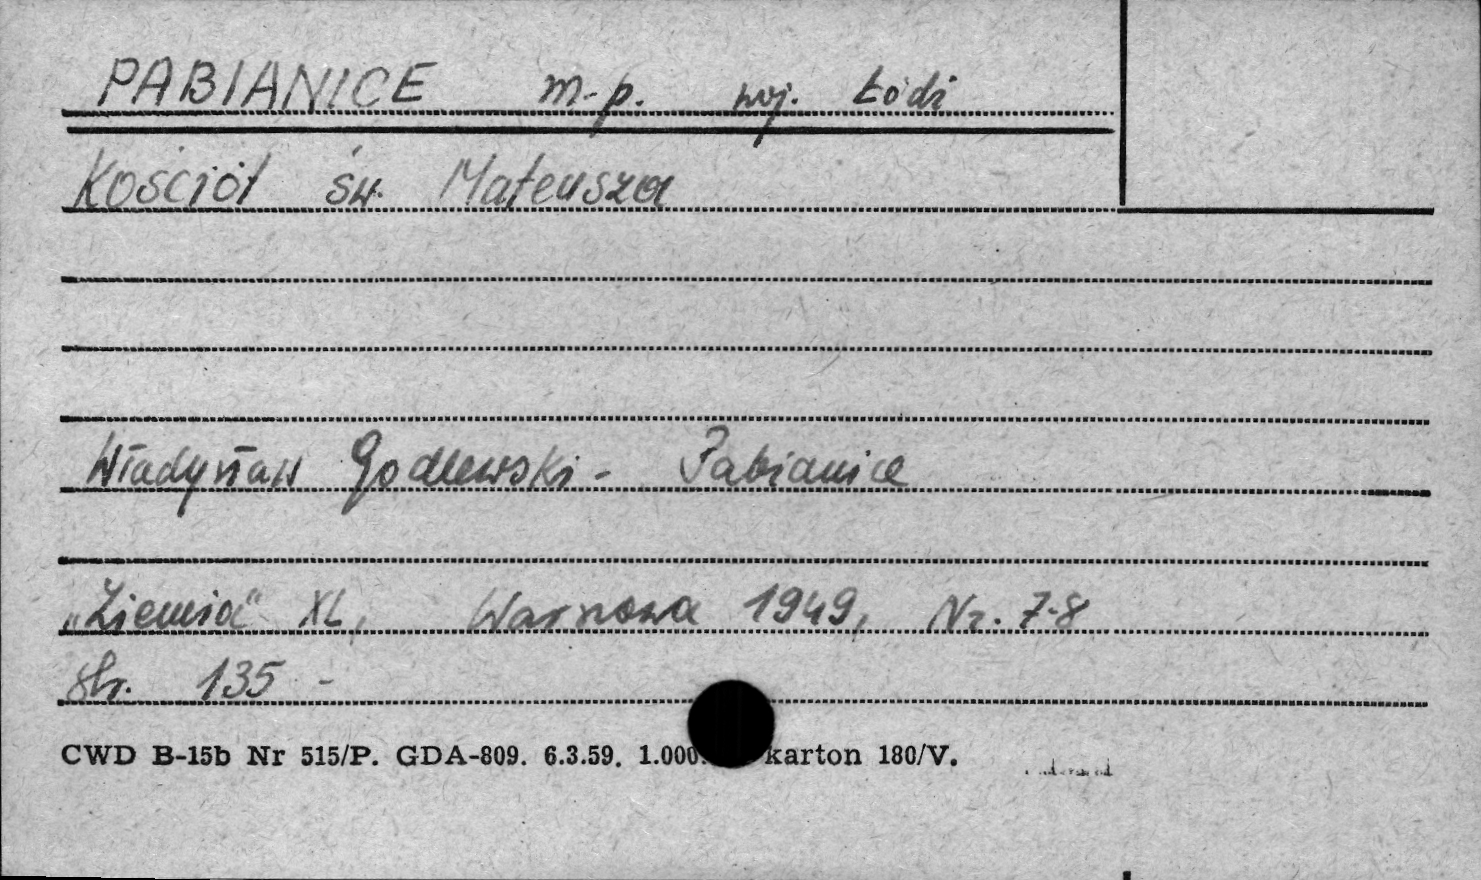 PABIANICE m-p. woj. Łódź
Kościół św. Mateusza
Władysław Godlewski - Pabianice
„Ziemia" XL, Warszawa 1949, Nr. 7-8
str. 135 -
CWD B-15b Nr 515/P. GDA-809. 6.3.59. 1.000. karton 180/V.